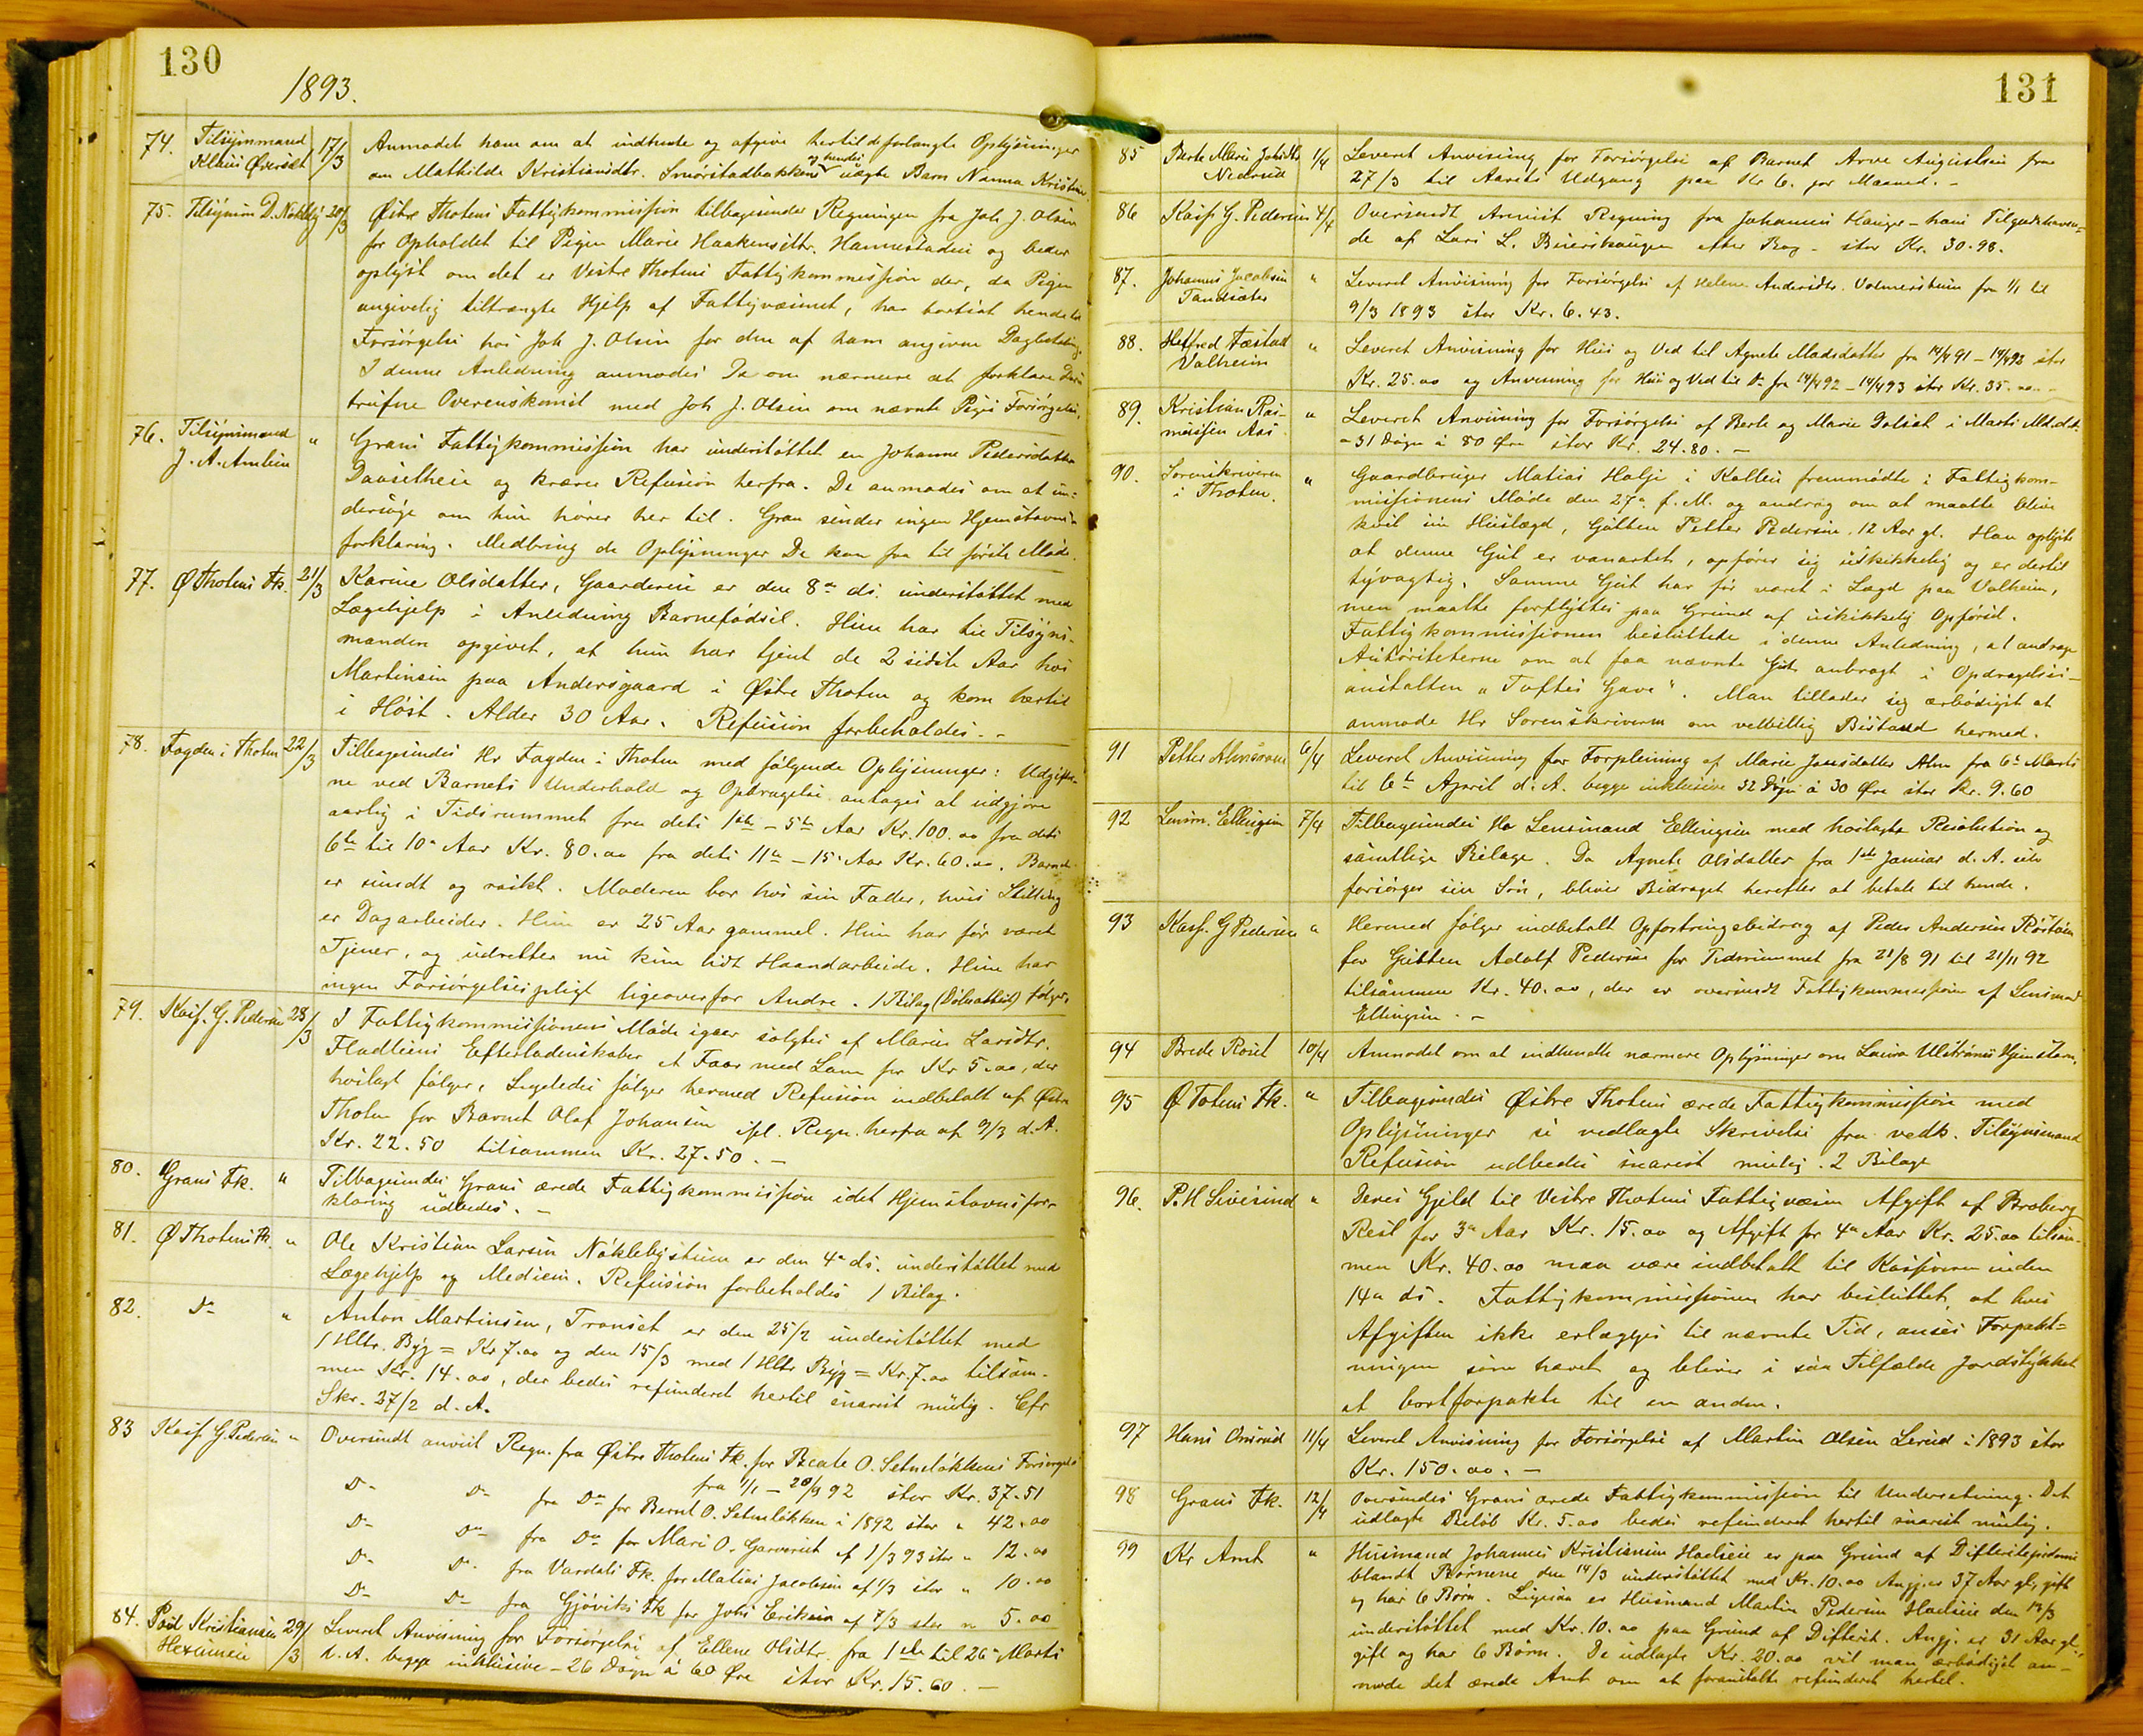 130
1893.
74. Tilsynsmand Klaus Øverset 17/3 Anmodet ham om at indhente og afgive hertil de forlangte Oplysninger
om Mathilde Kristiansdtr. Smørstadbakkens og hendes uægte Barn Nanna Kristine
75. Tilsynsm D. Nøkleby 20/3 Østre Thotens Fattigkommission tilbagesender Regningen fra Joh J. Olsen
for Opholdet til Pigen Marie Haakensdtr. Hannestadeie og beder
oplyst om det er Vestre Thotens Fattigkommission der, da Pigen
angivelig tiltrængte Hjelp af Fattigvæsenet, har bortsat hende til
Forsørgelse hos Joh J. Olsen for den af ham angivne Dagbetaling.
I denne Anledning anmodes De om nærmere at forklare Deres
trufne Overenskomst med Joh J. Olsen om nævnte Piges Forsørgelse.
76. Tilsynsmand J. A. Amlien " Grans Fattigkommission har understøttet en Johanne Pedersdatter
og kræver Refusion herfra. De anmodes om at un=
dersøge om hun hører her til. Gran sender ingen Hjemstavns=
forklaring. Medbring de Oplysninger De kan faa til første Møde.
77. Ø Thotens Fk. 21/3 Karine Olsdatter, Gaardereie er den 8de ds. understøttet med
Lægehjelp i Anledning Barnefødsel. Hun har til Tilsyns-
manden opgivet, at hun har tjent de 2 sidste Aar hos
Martinsen paa Andersgaard i Østre Thoten og kom hertil
i Høst. Alder 30 Aar. Refusion forbeholdes. -
78. Fogden i Thoten 22/3 Tilbagesendes Hr Fogden i Thoten med følgende Oplysninger: Udgifter-
ne ved Barnets Underhold og Opdragelse antages at udgjøre
aarlig i Tidsrummet fra dets 1ste - 5te Aar Kr. 100.00 fra dets
6te til 10de Aar Kr. 80.00 fra dets 11te - 15de Aar Kr. 60.00. Barnet
er sundt og raskt. Moderen bor hos sin Fader, hvis Stilling
er Dagarbeider. Hun er 25 Aar gammel. Hun har før været
Tjener, og udretter nu kun lidt Haandarbeide. Hun har
ingen Forsørgelsespligt ligeoverfor Andre. 1 Bilag (Døbsattest) følger.
79. Kass. G. Pedersen 28/3 I Fattigkommissionens Møde igaar solgtes af Maries Larsdtr.
Fladliens Efterladenskaber et Faar med Lam for Kr 5.00, der
hoslagt følger. Ligeledes følger hermed Refusion indbetalt af Østre
Thoten for Barnet Olaf Johansen ifl. Regn. herfra af 9/3 d.A.
Kr. 22.50 tilsammen Kr. 27.50. -
80. Grans Fk. " Tilbagesendes Grans ærede Fattigkommission idet Hjemstavnsfor-
klaring udbedes. -
81. Ø Thotens Fk. " Ole Kristian Larsen Nøklebystuen er den 4de ds. understøttet med
Lægehjelp og Medicin. Refusion forbeholdes 1 Bilag.
82. Do " Anton Martinsen, Transet er den 25/2 understøttet med
1 Hltr. Byg = Kr 7.00 og den 15/3 med 1 Hltr Byg = Kr. 7.00 tilsam-
men Kr. 14.00, der bedes refunderet hertil snarest mulig. Cfr
Skr. 27/2 d.A.
83 Kass. G. Pedersen " Oversendt anvist Regn. fra Østre Thotens Fk. for Beate O. Setneløkkens Forsørgelse
fra 1/1 - 20/9 92 stor Kr. 37.51
Do Do fra Do for Bernt O. Setneløkken i 1892 stor " 42.00
Do Do fra Do for Mari O. af 1/3 93 stor " 12.00
Do Do fra Vardals Fk. for Matias Jacobsen af 1/3 stor " 10.00
Do Do fra Gjøviks Fk for Johs Eriksen af 7/3 stor " 5.00
84. Paul Kristiansen Hexumeie 29/3 Leveret Anvisning for Forsørgelse af Ellene Olsdtr. fra 1ste til 26de Marts
d.A. begge inklusive - 26 Døgn à 60 Øre stor Kr. 15.60. -
131
85 Berte Marie Johsdtr Nedrud 1/4 Leveret Anvisning for Forsørgelse af Barnet Arne Augustsen fra
27/3 til Aarets Udgang paa Kr 6. per Maaned. -
86 Kass G. Pedersen 4/4 Oversendt Anvist Regning fra Johannes Hauger - hans Tilgodehaven=
de af Lars L. efter Bog - stor Kr. 30.98.
87. Johannes Jacobsen " Leveret Anvisning for Forsørgelse af Helene Andersdtr. Volmerstuen fra 1/1 til
9/3 1893 stor Kr. 6.43.
88. Helfred Fæstad Valheim " Leveret Anvisning for Hus og Ved til Agnete Madsdatter fra 14/4 91 - 14/4 92 stor
Kr. 25.00 og Anvisning for Hus og Ved til Do fra 14/4 92 - 14/4 93 stor Kr. 35.00. -
89. Kristian Ras-
mussen Aas " Leveret Anvisning for Forsørgelse af Berte og Marie i Marts Md. d.A.
- 31 Døgn à 80 Øre stor Kr. 24.80. -
90. Sorenskriveren i Thoten. " Gaardbruger Matias Halje i Kolbu fremmødte i Fattigkom-
missionens Møde den 27de f. M. og androg om at maatte blive
kvit sin Huslægd, Gutten Petter Pedersen, 12 Aar gl. Han oplyste
at denne Gut er vanartet, opfører sig uskikkelig og er dertil
tyvagtig. Samme Gut har før været i Lægd paa Valheim,
men maatte forflyttes paa Grund af uskikkelig Opførsel.
Fattigkommissionen besluttede i denne Anledning, at andrage
Autoriteterne om at faa nævnte Gut anbragt i Opdragelses-
anstalten "Toftes Gave". Man tillader sig ærbødigst at
anmode Hr Sorenskriveren om velvillig Bistand hermed.
91 Petter 6/4 Leveret Anvisning for Forpleining af Marie Jensdatter Alm fra 6te Marts
til 6te April d.A. begge inklusive 32 Døgn à 30 Øre stor Kr. 9.60
92 Lensm. Ellingsen 7/4 Tilbagesendes Hr Lensmand Ellingsen med hoslagte Resolution og
samtlige Bilage. Da Agnete Olsdatter fra 1ste Januar d.A. selv
forsørger sin Søn, bliver Bidraget herefter at betale til hende.
93 Kass. G Pedersen " Hermed følger indbetalt Opfostringsbidrag af Peder Andersen
for Gutten Adolf Pedersen for Tidsrummet fra 21/8 91 til 21/11 92
tilsammen Kr. 40.00, der er oversendt Fattigkommissionen af Lensmand
Ellingsen. -
94 Brede Roset 10/4 Anmodet om at indhente nærmere Oplysninger om Laura Hjemstavn.
95 Ø Totens Fk. " Tilbagesendes Østre Thotens ærede Fattigkommission med
Oplysninger se vedlagte Skrivelse fra vedk. Tilsynsmand
Refusion udbedes snarest mulig. 2 Bilage
96. P. H Sivesind " Deres Gjeld til Vestre Thotens Fattigvæsen Afgift af Broberg
Rest for 3de Aar Kr. 15.00 og Afgift for 4de Aar Kr. 25.00 tilsam-
men Kr. 40.00 maa være indbetalt til Kassereren inden
14de ds. Fattigkommissionen har besluttet, at hvis
Afgiften ikke erlægges til nævnte Tid, anses Forpakt=
ningen som hævet og bliver i saa Tilfælde Jordstykket
at bortforpakte til en anden.
97 Hans Onsrud 11/4 Leveret Anvisning for Forsørgelse af Martin Olsen Lerud i 1893 stor
Kr. 150.00. -
98 Grans Fk. 12/4 Oversendes Grans ærede Fattigkommission til Underretning. Det
udlagte Beløb Kr. 5.00 bedes refunderet hertil snarest mulig.
99 Kr Amt " Husmand Johannes Kristiansen er paa Grund af
blandt Børnene den 14/3 understøttet med Kr. 10.00 Angj. er 37 Aar gl, gift
og har 6 Børn. Ligesaa er Husmand Martin Pedersen den 14/3
understøttet med Kr. 10.00 paa Grund af Difterit. Angj. er 31 Aar gl,
gift og har 6 Børn. De udlagte Kr. 20.00 vil man ærbødigst an-
mode det ærede Amt om at foranstalte refunderet hertil.